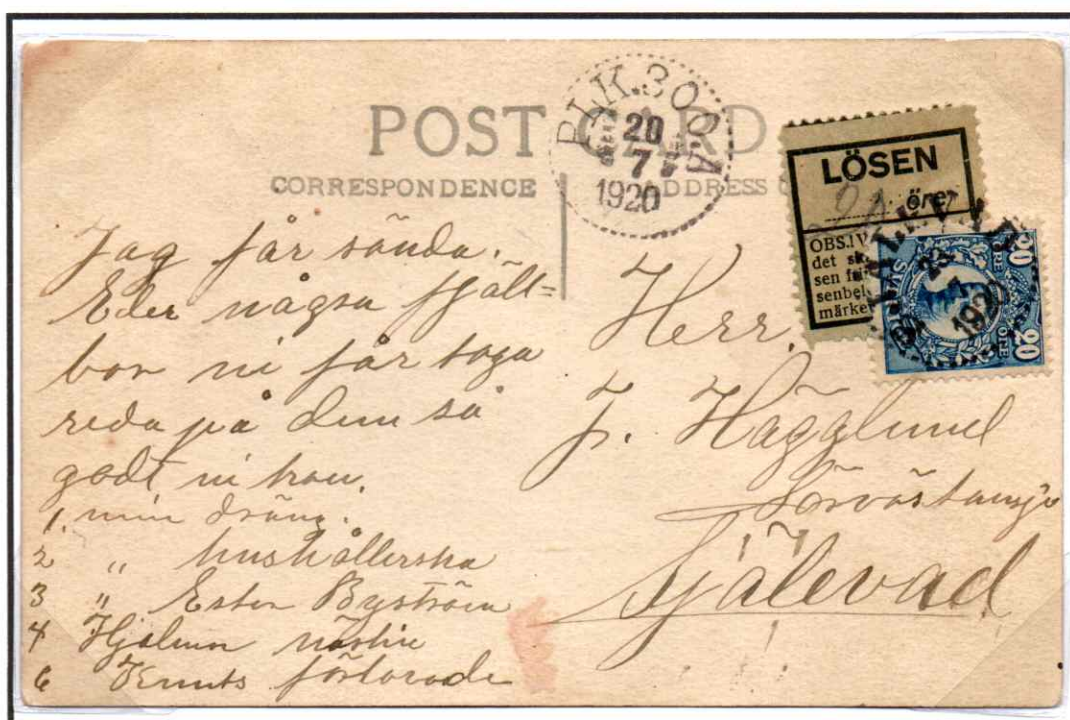 POST CARD
CORRESPONDENCE
ADDRESS
PLK.300.A
20
7
1920
LÖSEN
öre
OBS.
det
sen
senbel
märke
20
ÖRE
20
ÖRE
1920
Jag får sända
Eder några fjäll=
bor ni får taga
reda på dem så
godt ni kan.
1. min dräng.
2 " hushållerska
3 " Ester Byström
4 Hjalmar
6 Knuts
Herr.
J. Hägglund
Själevad